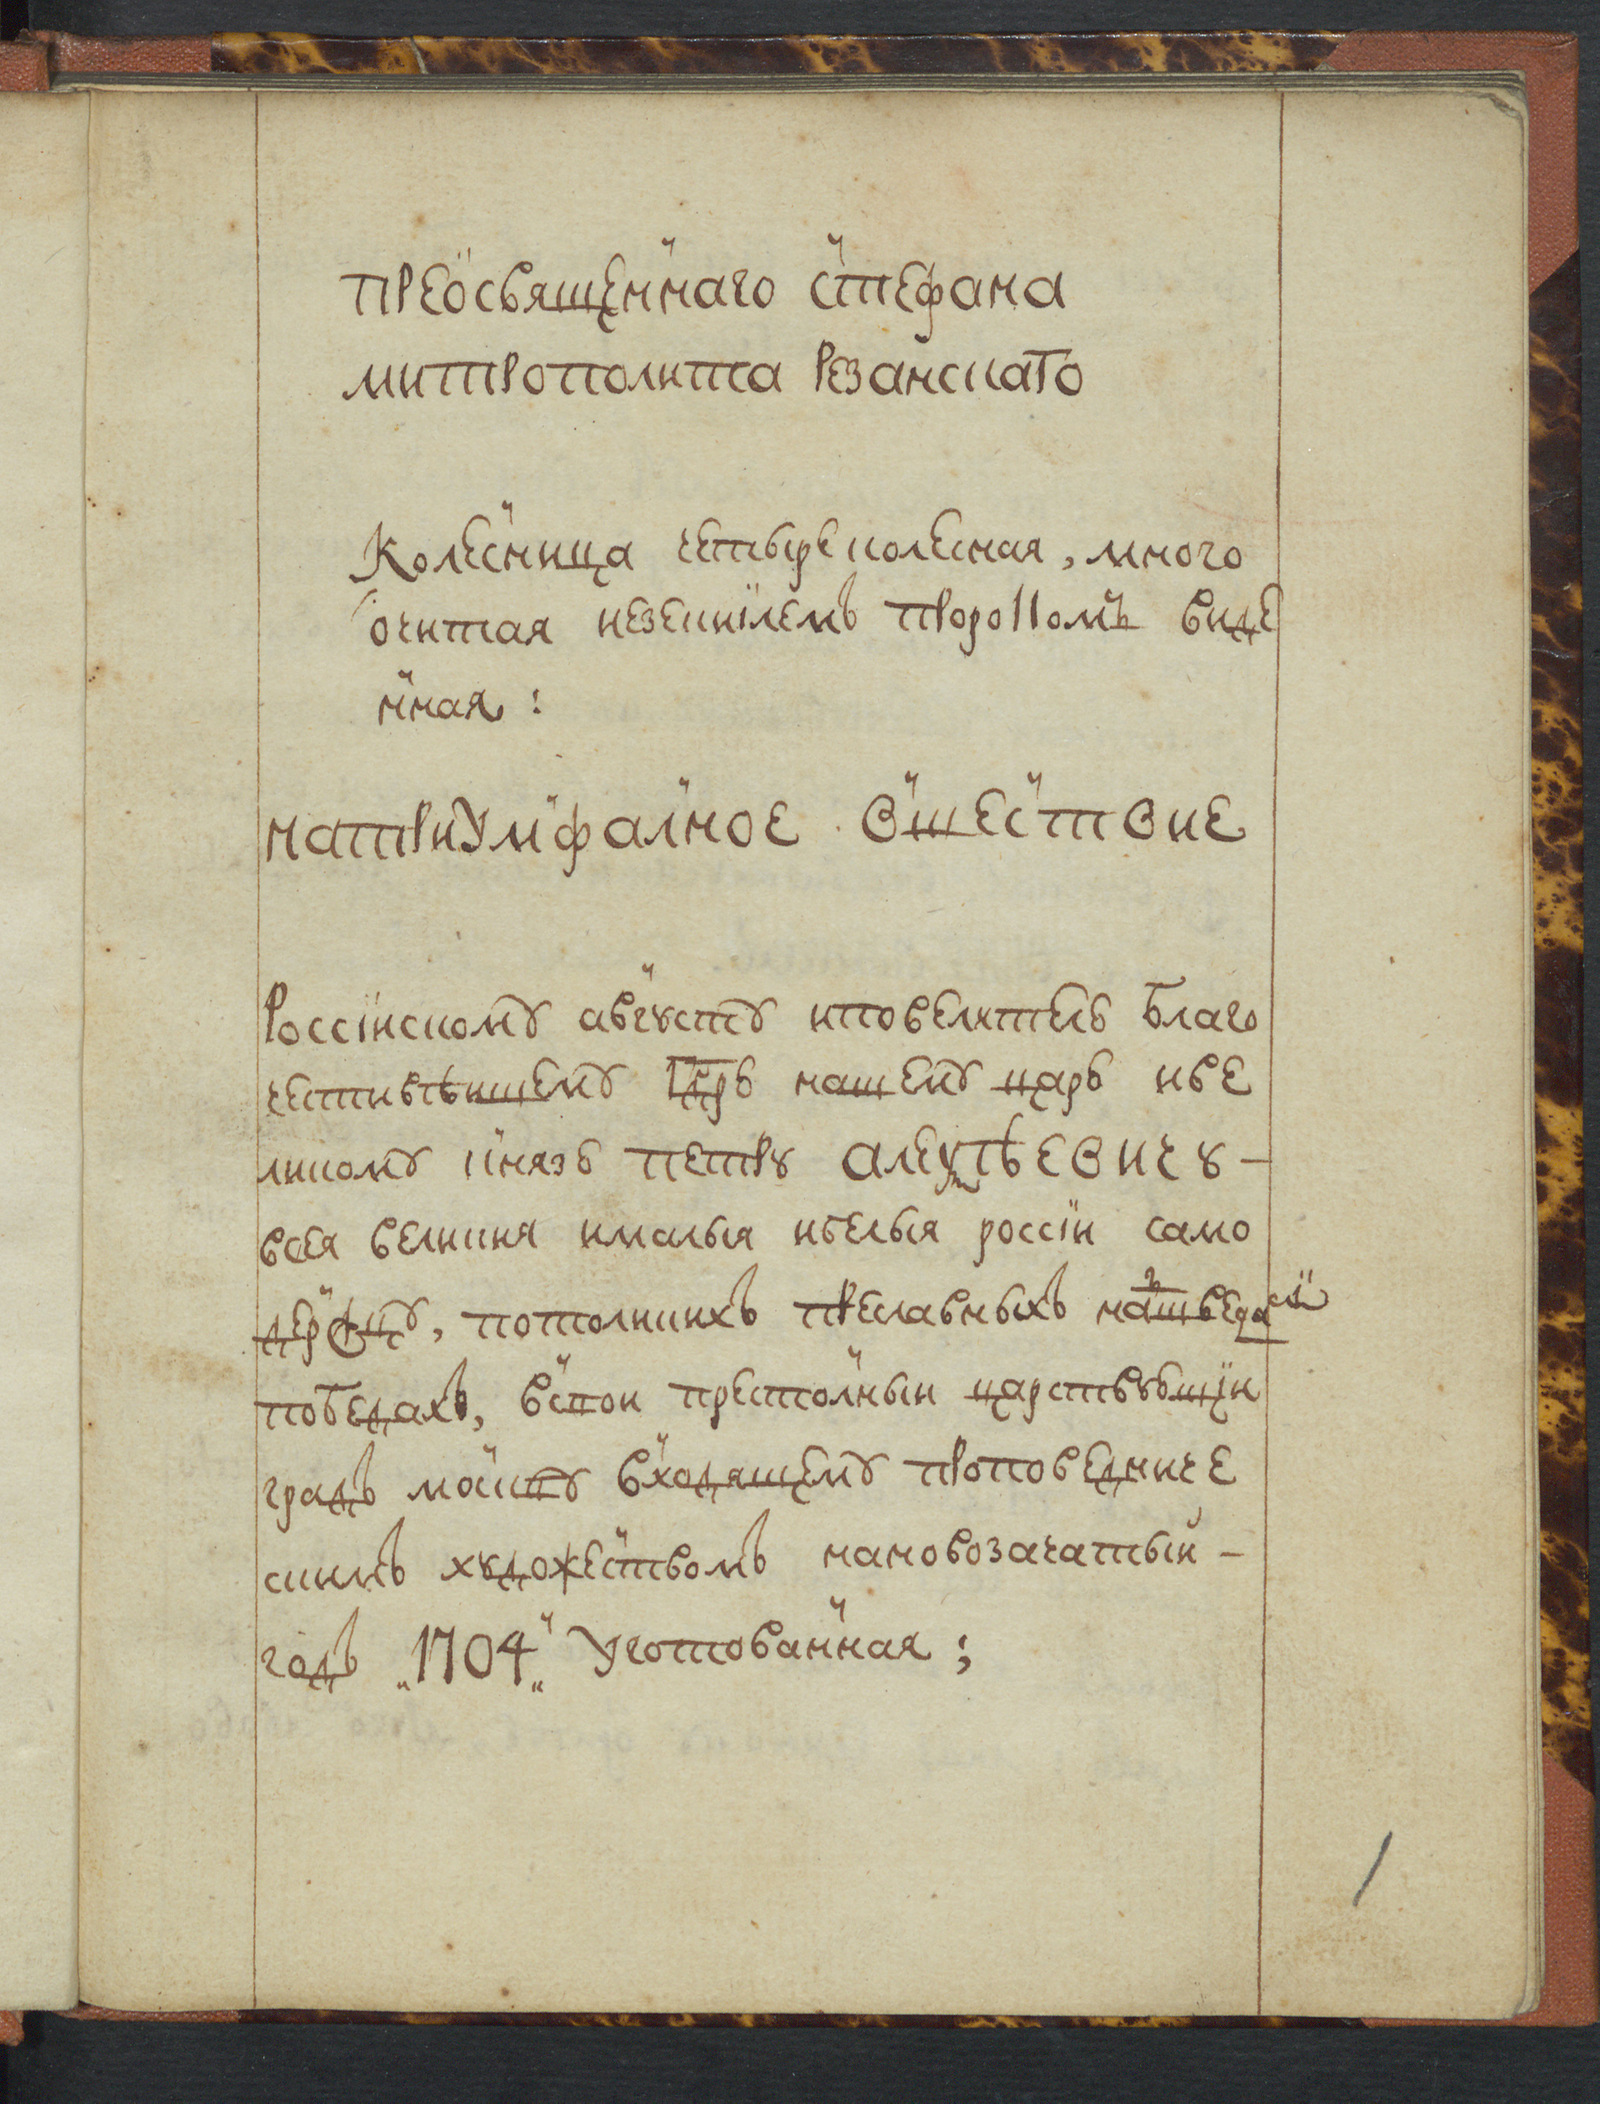 преосвященнаго стефана
митрополита резанскаго
Колесница четыре колесная, много
очитая иезекиілемъ пророкомъ виде
нная:
натриумфалное вшествие
Россіискому августу иповелителю благо
честивѣишему Гдрю нашему царю иве
ликому князю петру алеѯѣевичу –
всея великия ималыя ибелыя россіи само
держцу, потоликихъ преславныхъ нашведаси
победахъ, встои престолныи царствующіи
градъ москву входящему проповедниче
скимъ художествомъ нановозачатый –
годъ „1704„ Уготованная;
1